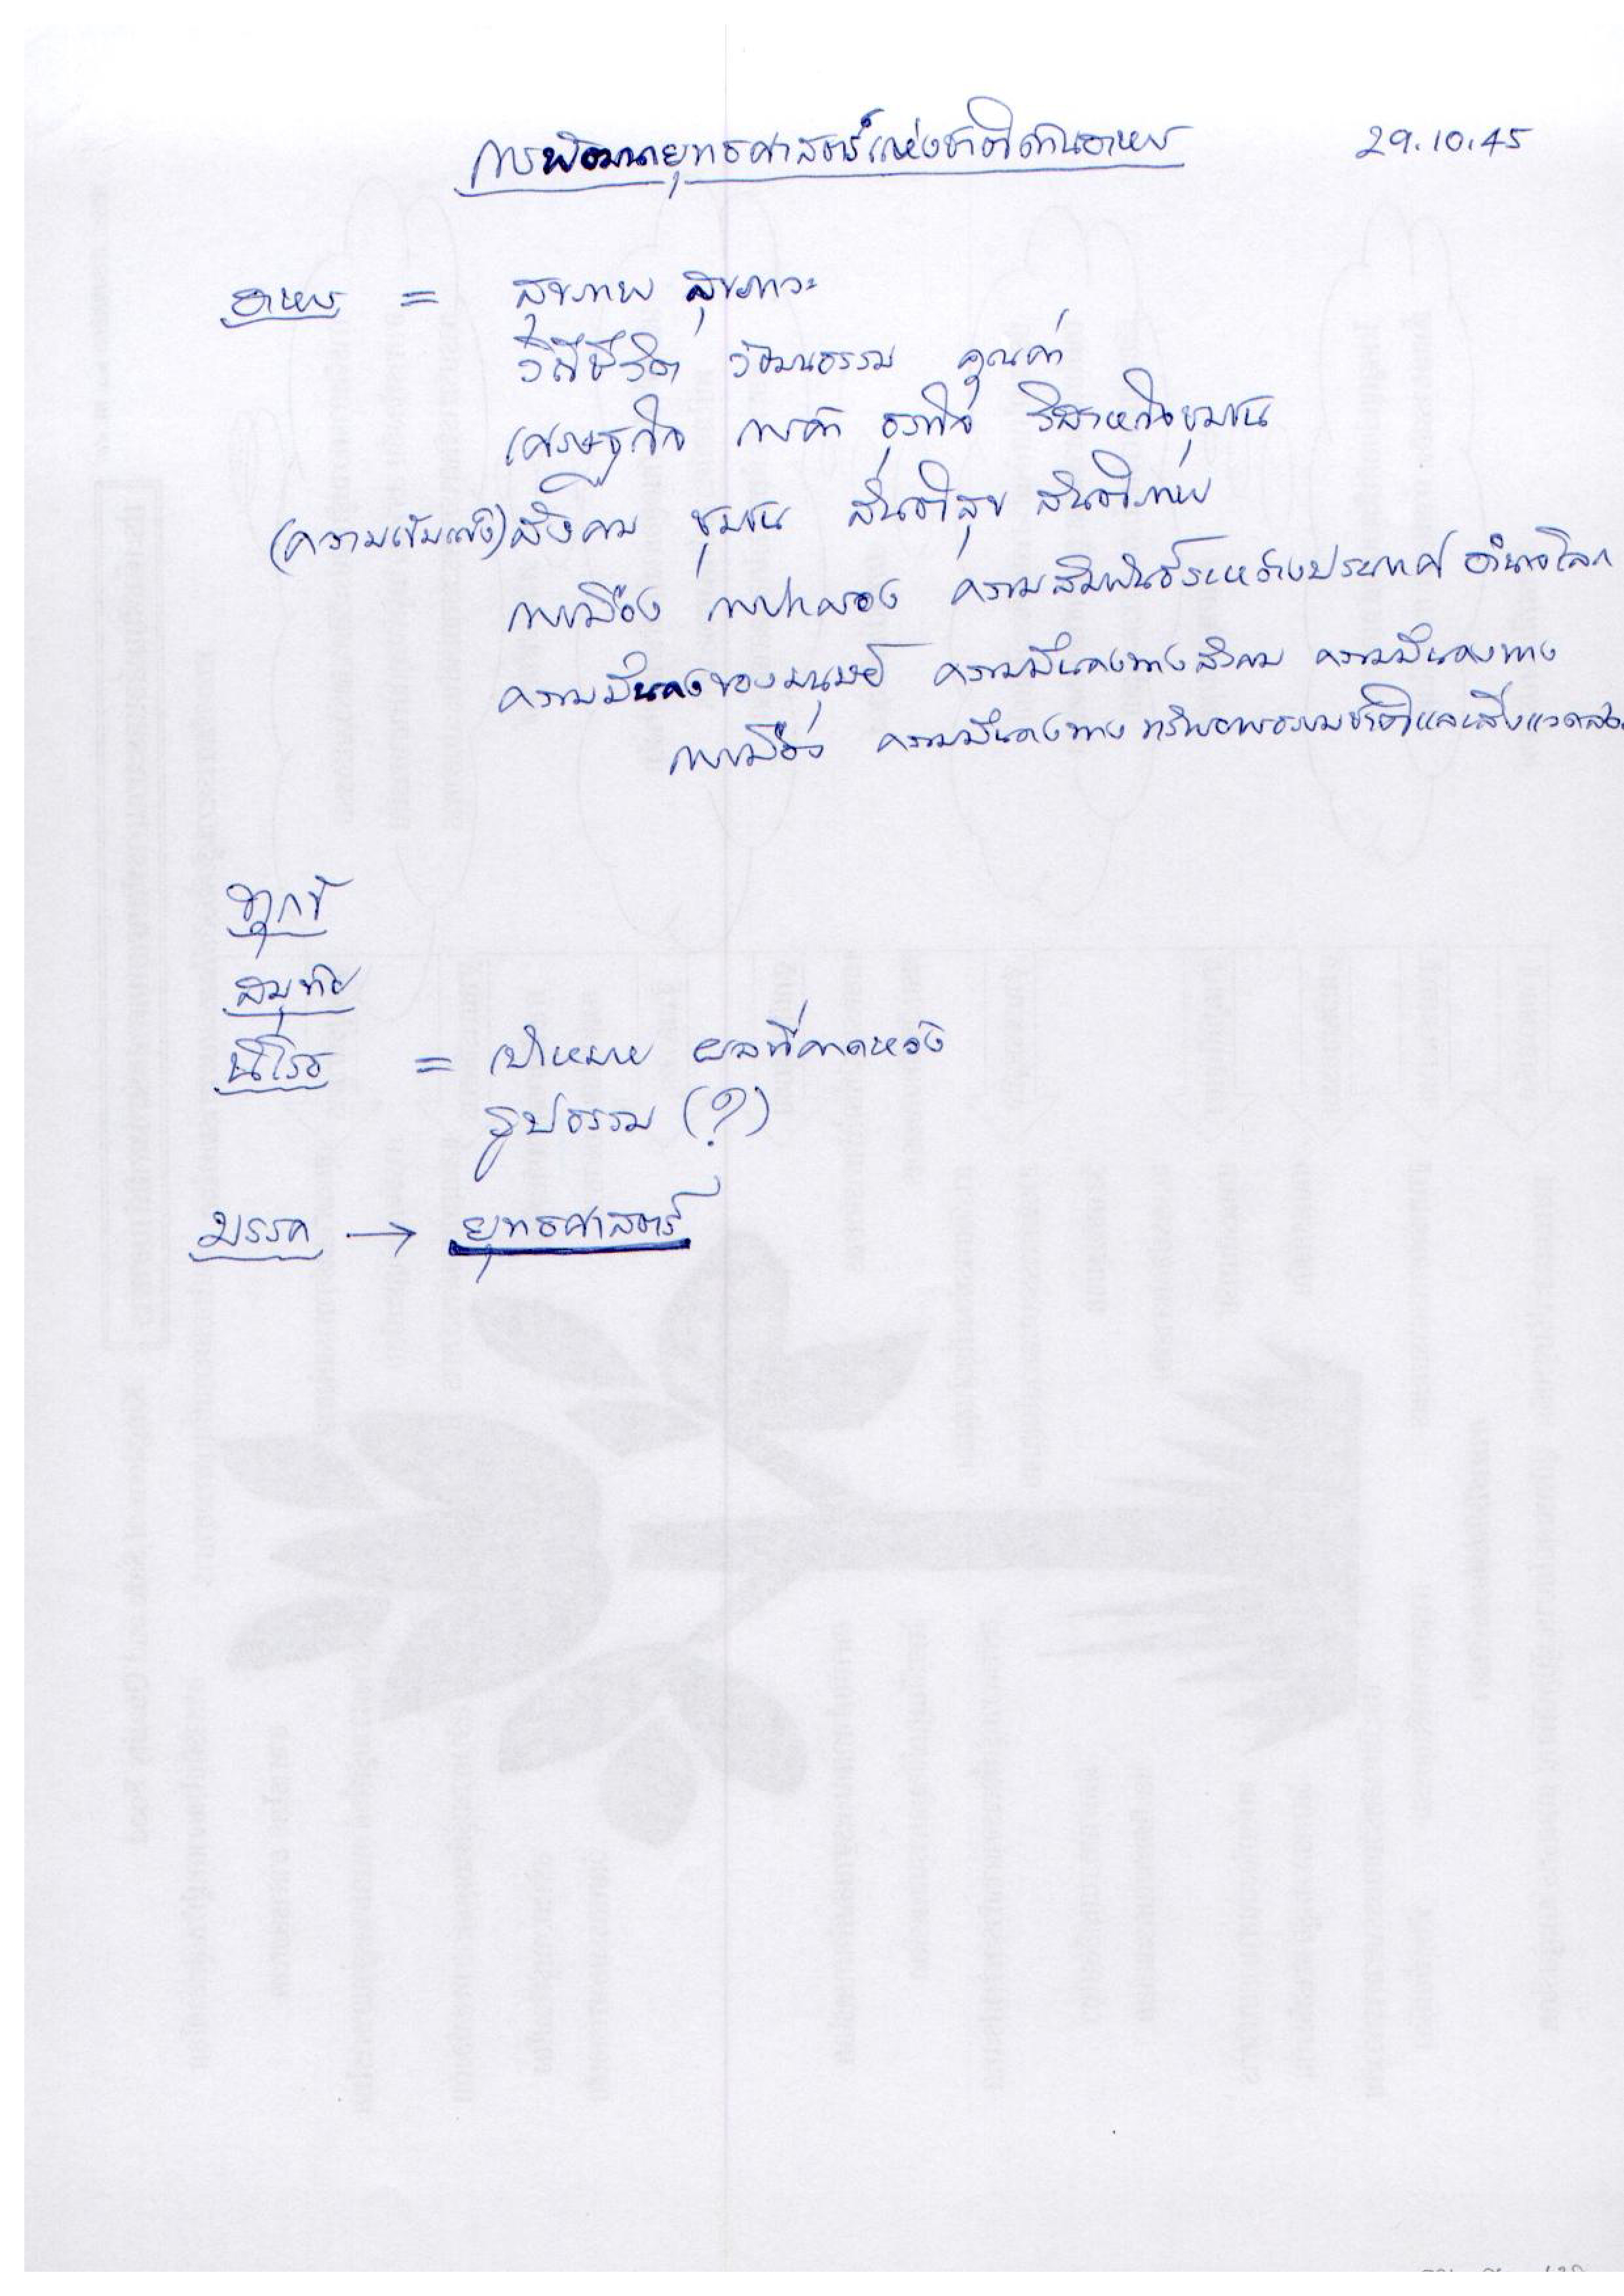 การพัฒนายุทธศาสตร์แห่งชาติด้านอาหาร 29.10.45
อาหาร = สุขภาพ สุขภาวะ
วิถีชีวิต วัฒนธรรม คุณค่า
เศรษฐกิจ การค้า ธุรกิจ วิสาหกิจชุมชน
(ความเข้มแข็ง) สังคม ชุมชน สันติสุข สันติภาพ
การเมือง การปกครอง ความสัมพันธ์ระหว่างประเทศ อำนาจโลก
ความมั่นคงของมนุษย์ ความมั่นคงทางสังคม ความมั่นคงทาง
การเมือง ความมั่นคงทางทรัพยากรธรรมชาติและสิ่งแวดล้อม
ทุกข์
สมุทัย
นิโรธ = เป้าหมาย ผลที่คาดหวัง
รูปธรรม (?)
มรรค → ยุทธศาสตร์